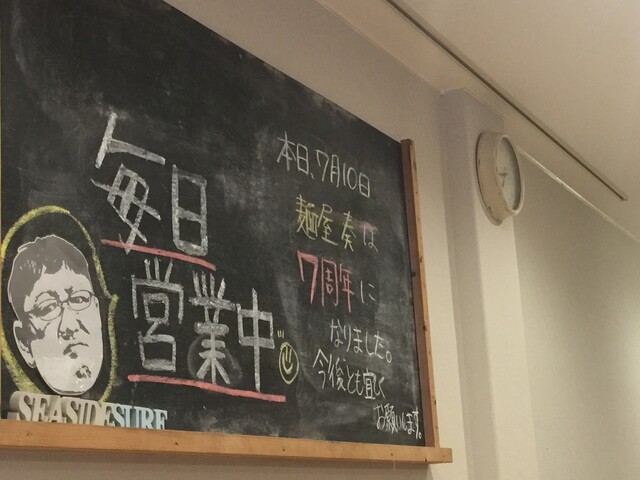 毎日
営業中
本日、7月10日
麺屋奏は
7周年に
なりました。
今後とも宜しく
お願いします。
SEASIDESURF